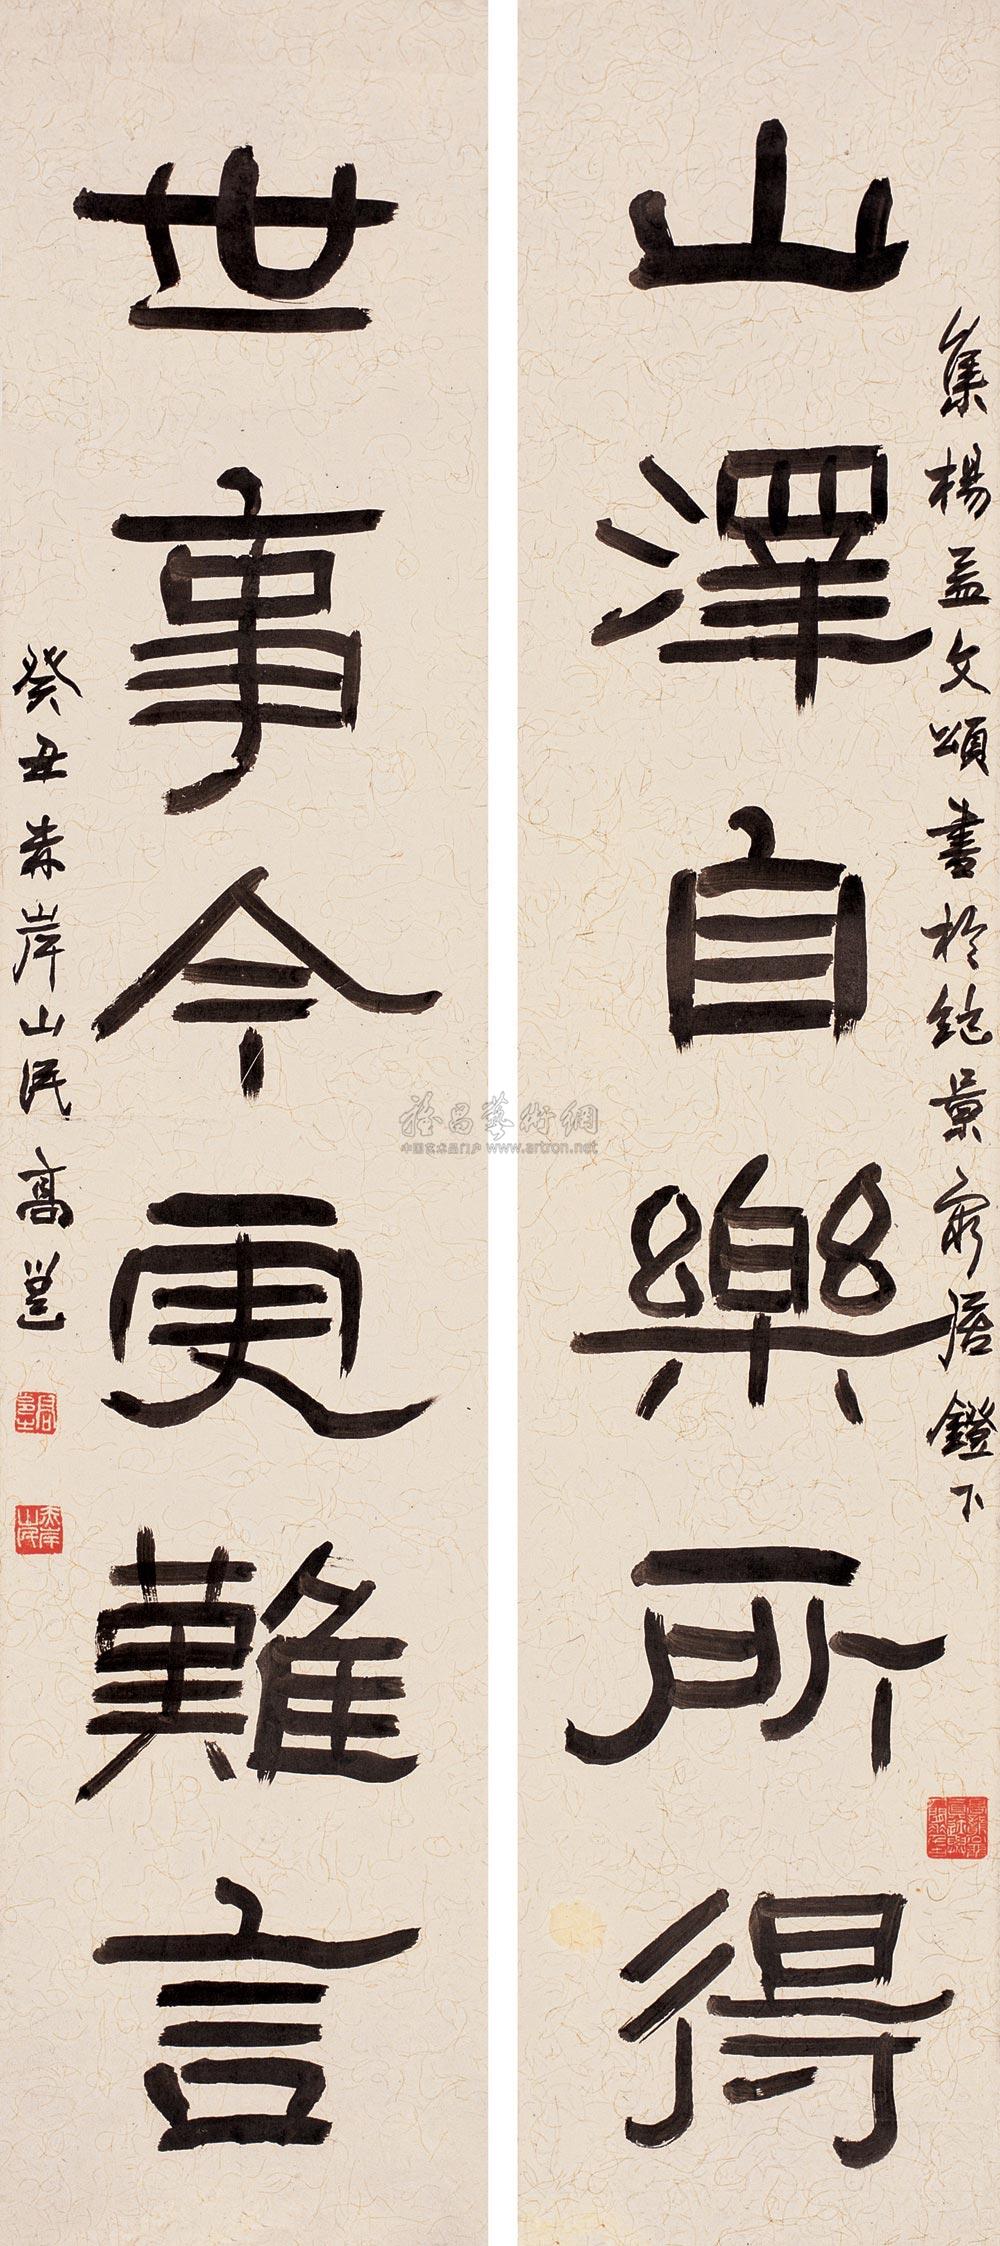 集楊孟文頌書於鉋景窮居鐙下
山澤自樂所得
世事今更難言
癸丑赤岸山民高邕
雅昌藝術網
中国艺术品门户 www.artron.net